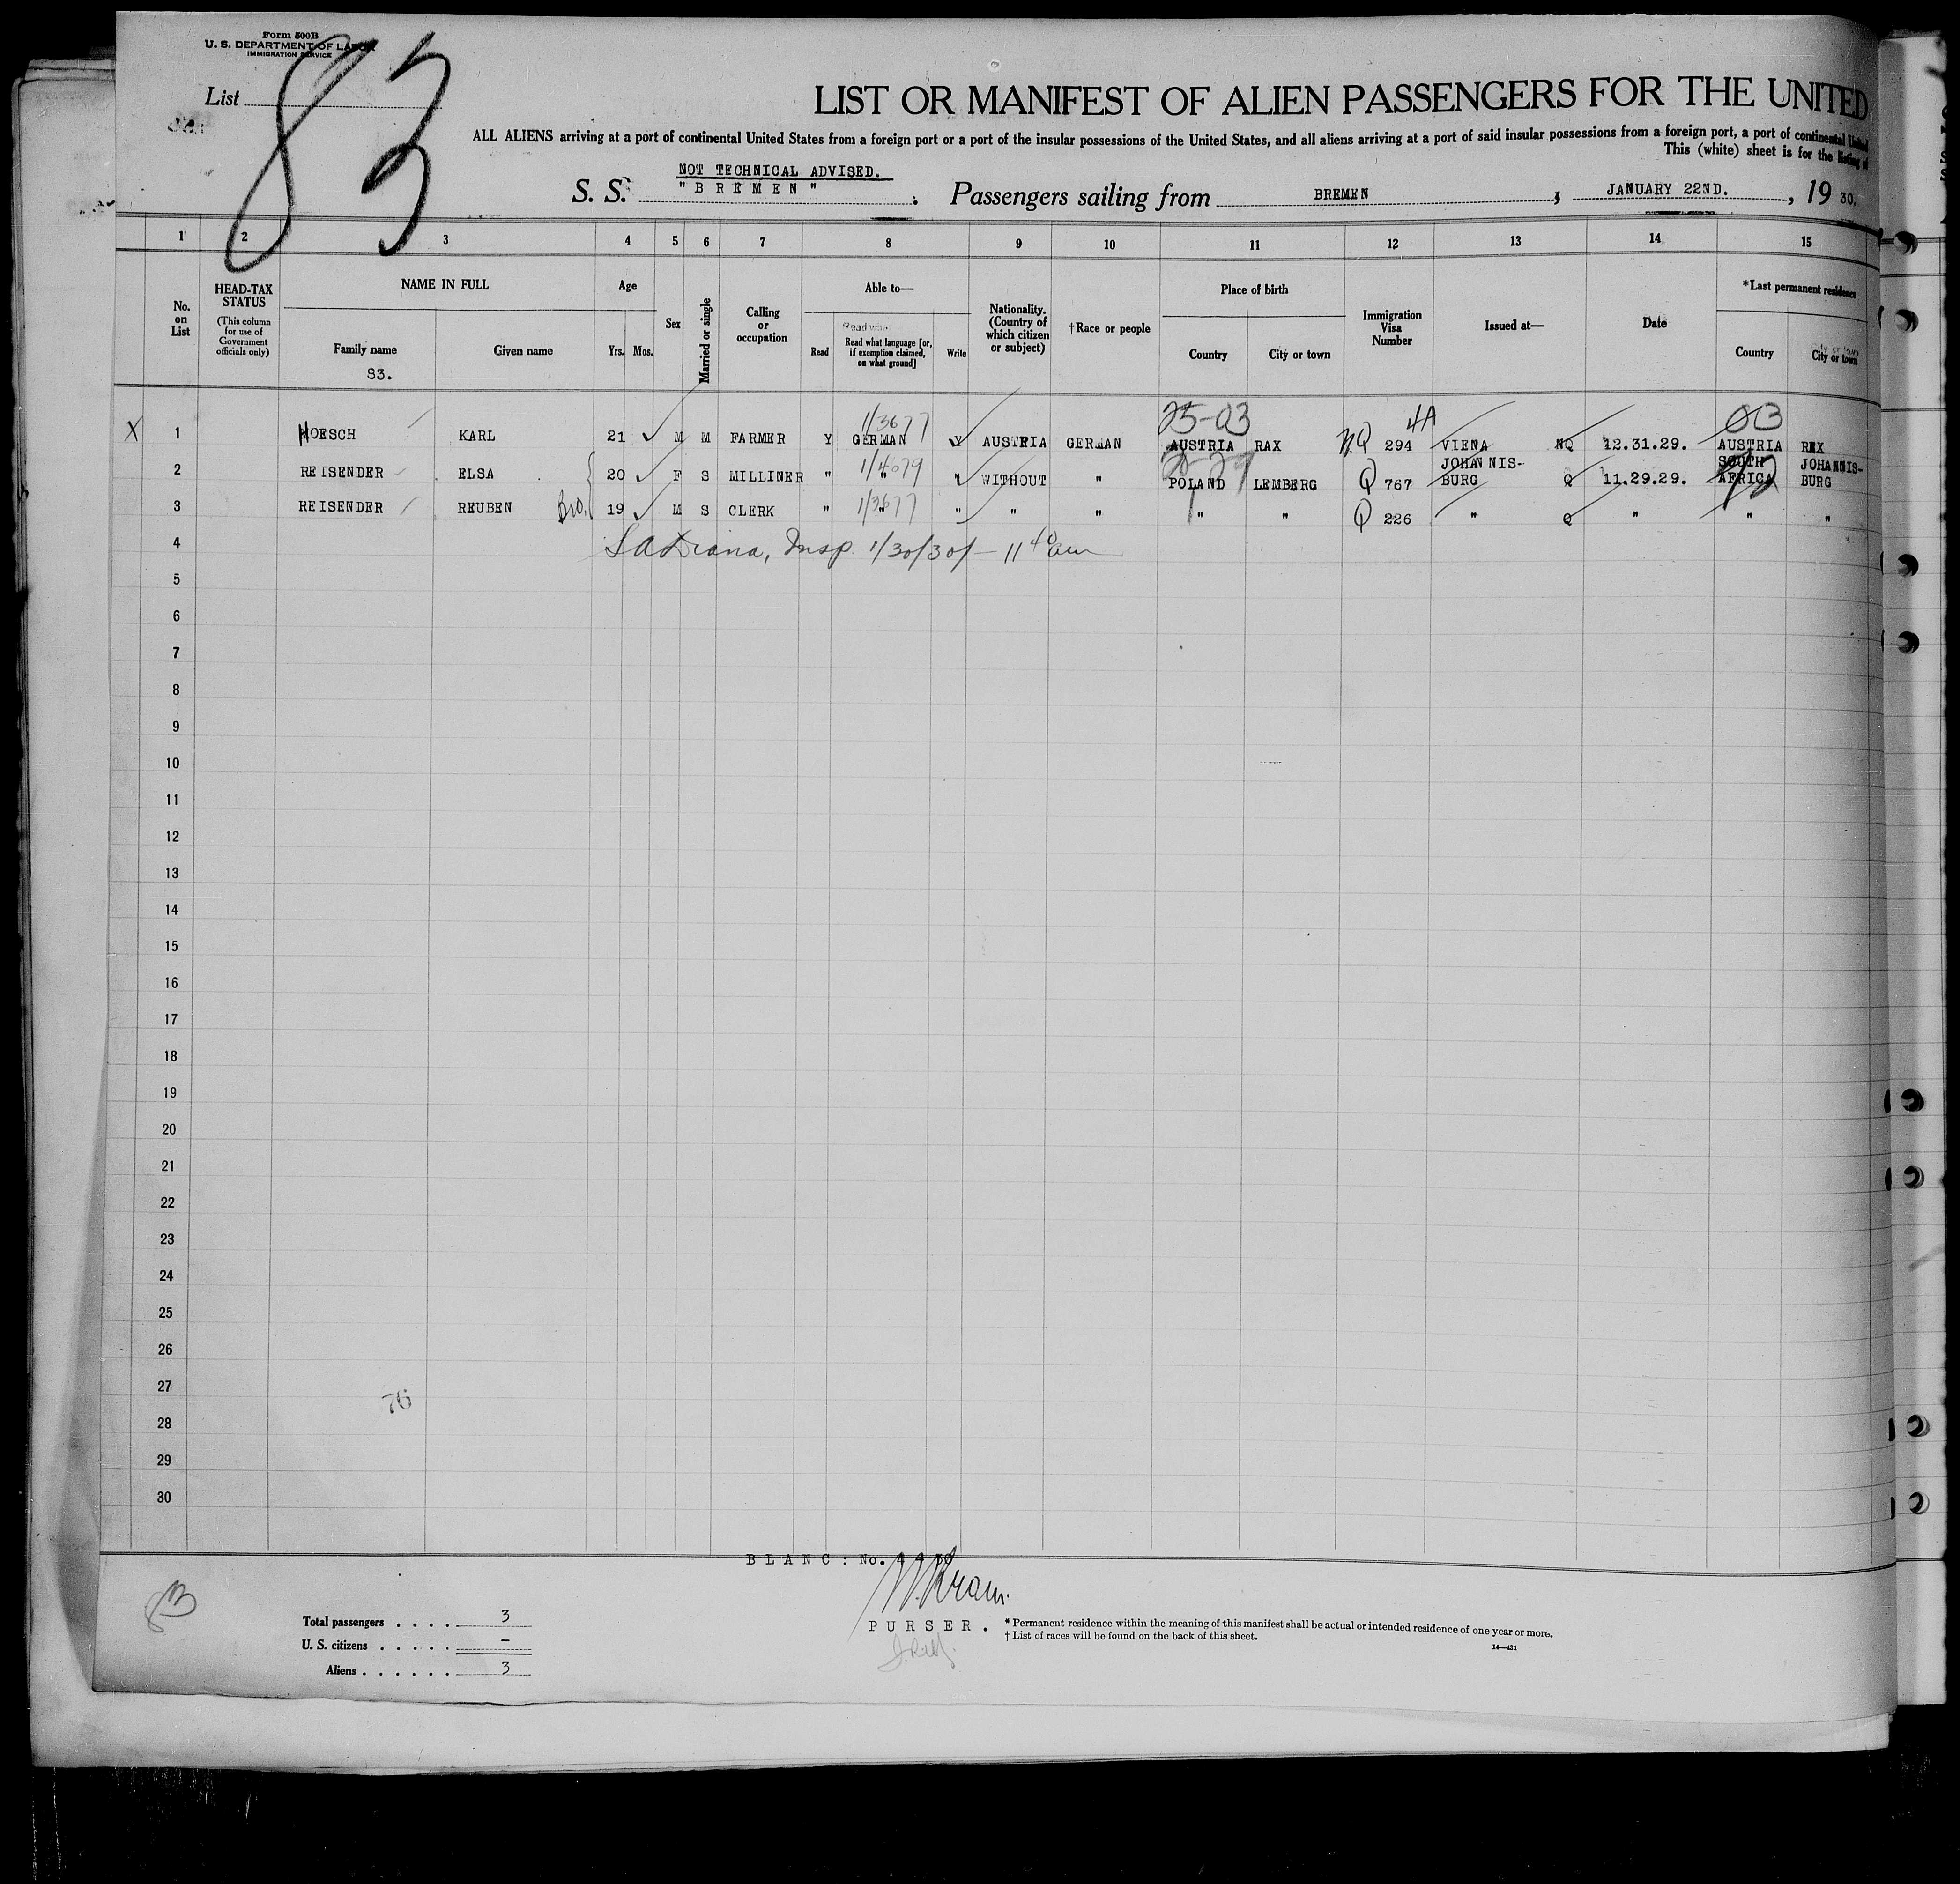 Form 500B
U. S. DEPARTMENT OF LABOR
IMMIGRATION SERVICE
List
83
LIST OR MANIFEST OF ALIEN PASSENGERS FOR THE UNITED
ALL ALIENS arriving at a port of continental United States from a foreign port or a port of the insular possessions of the United States, and all aliens arriving at a port of said insular possessions from a foreign port, a port of continental United
This (white) sheet is for the listing of
NOT TECHNICAL ADVISED.
S. S. "BREMEN" Passengers sailing from BREMEN, JANUARY 22ND., 19 30.
1 2 3 4 5 6 7 8 9 10 11 12 13 14 15
No. on List
HEAD-TAX STATUS (This column for use of Government officials only)
NAME IN FULL
Family name
83.
Given name
Age
Yrs. Mos.
Sex
Married or single
Calling or occupation
Able to—
Read
Read what language [or, if exemption claimed, on what ground]
Write
Nationality. (Country of which citizen or subject)
†Race or people
Place of birth
Country
City or town
Immigration Visa Number
Issued at—
Date
*Last permanent residence
Country
City or town
1/3677 25-03 4A 03
X 1 HOESCH KARL 21 M M FARMER Y GERMAN Y AUSTRIA GERMAN AUSTRIA RAX NQ 294 VIENA NQ 12.31.29. AUSTRIA REX
2 REISENDER ELSA 20 F S MILLINER " " " WITHOUT " POLAND LEMBERG Q 767 JOHANNIS-BURG Q 11.29.29. SOUTH AFRICA JOHANNIS-BURG
3 REISENDER REUBEN Bro. 19 M S CLERK " 1/3677 " " " " " " Q 226 " Q " " "
4 Insp. 1/30/30 — 11 40 am
5
6
7
8
9
10
11
12
13
14
15
16
17
18
19
20
21
22
23
24
25
26
27
76
28
29
30
BLANC: No. 4 - 30
PURSER.
Total passengers . . . . 3
U. S. citizens . . . . . –
Aliens . . . . . . 3
* Permanent residence within the meaning of this manifest shall be actual or intended residence of one year or more.
† List of races will be found on the back of this sheet.
14—431